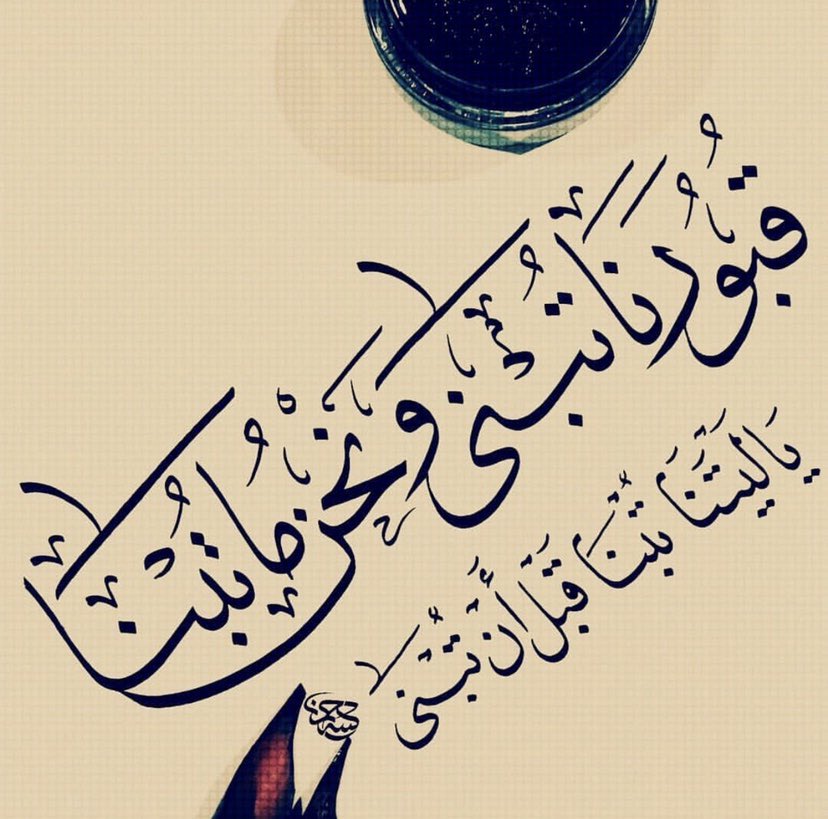 قُبُورُنَا تُبْنَى وَنَحْنُ مَا تُبْنَا
يَا لَيْتَنَا تُبْنَا قَبْلَ أَنْ تُبْنَى